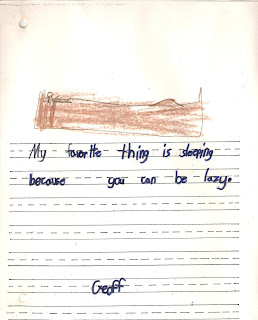 My favorite thing is sleeping
because you can be lazy.
Geoff